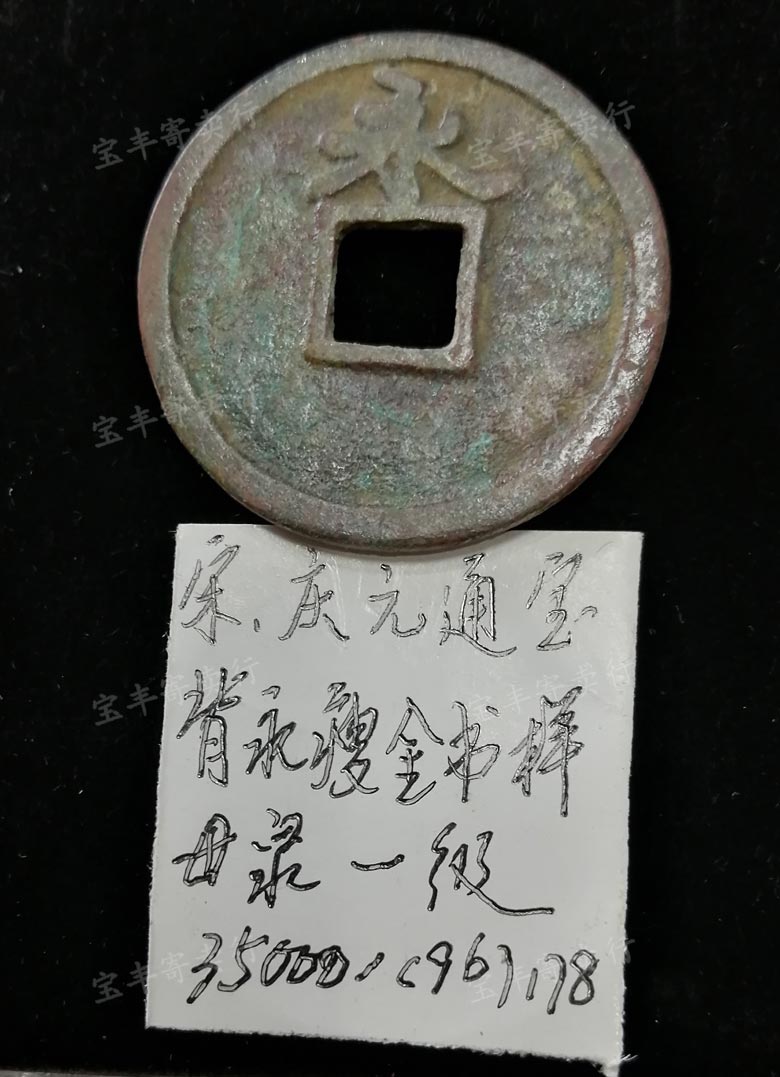 永
宋、庆元通宝
背永瘦金书样
母泉一级
35000、(96)178
宝丰寄卖行
宝丰寄卖行
宝丰寄卖行
宝丰寄卖行
宝丰寄卖行
宝丰寄卖行
宝丰寄卖行
宝丰寄卖行